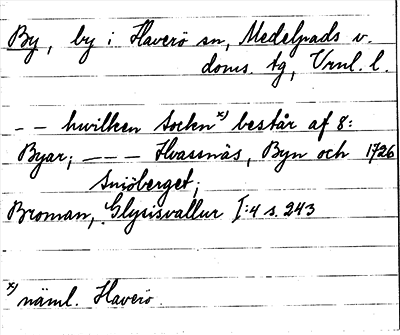 By, by i Haverö sn, Medelpads v.
doms. tg, Vrnl. l.
-- hwilken Sockn x) består af 8:
Byar; --- Hvassnäs, Byn och 1726
Sniöberget;
Broman, Glysisvallur I:4 s. 243
x) näml. Haverö.